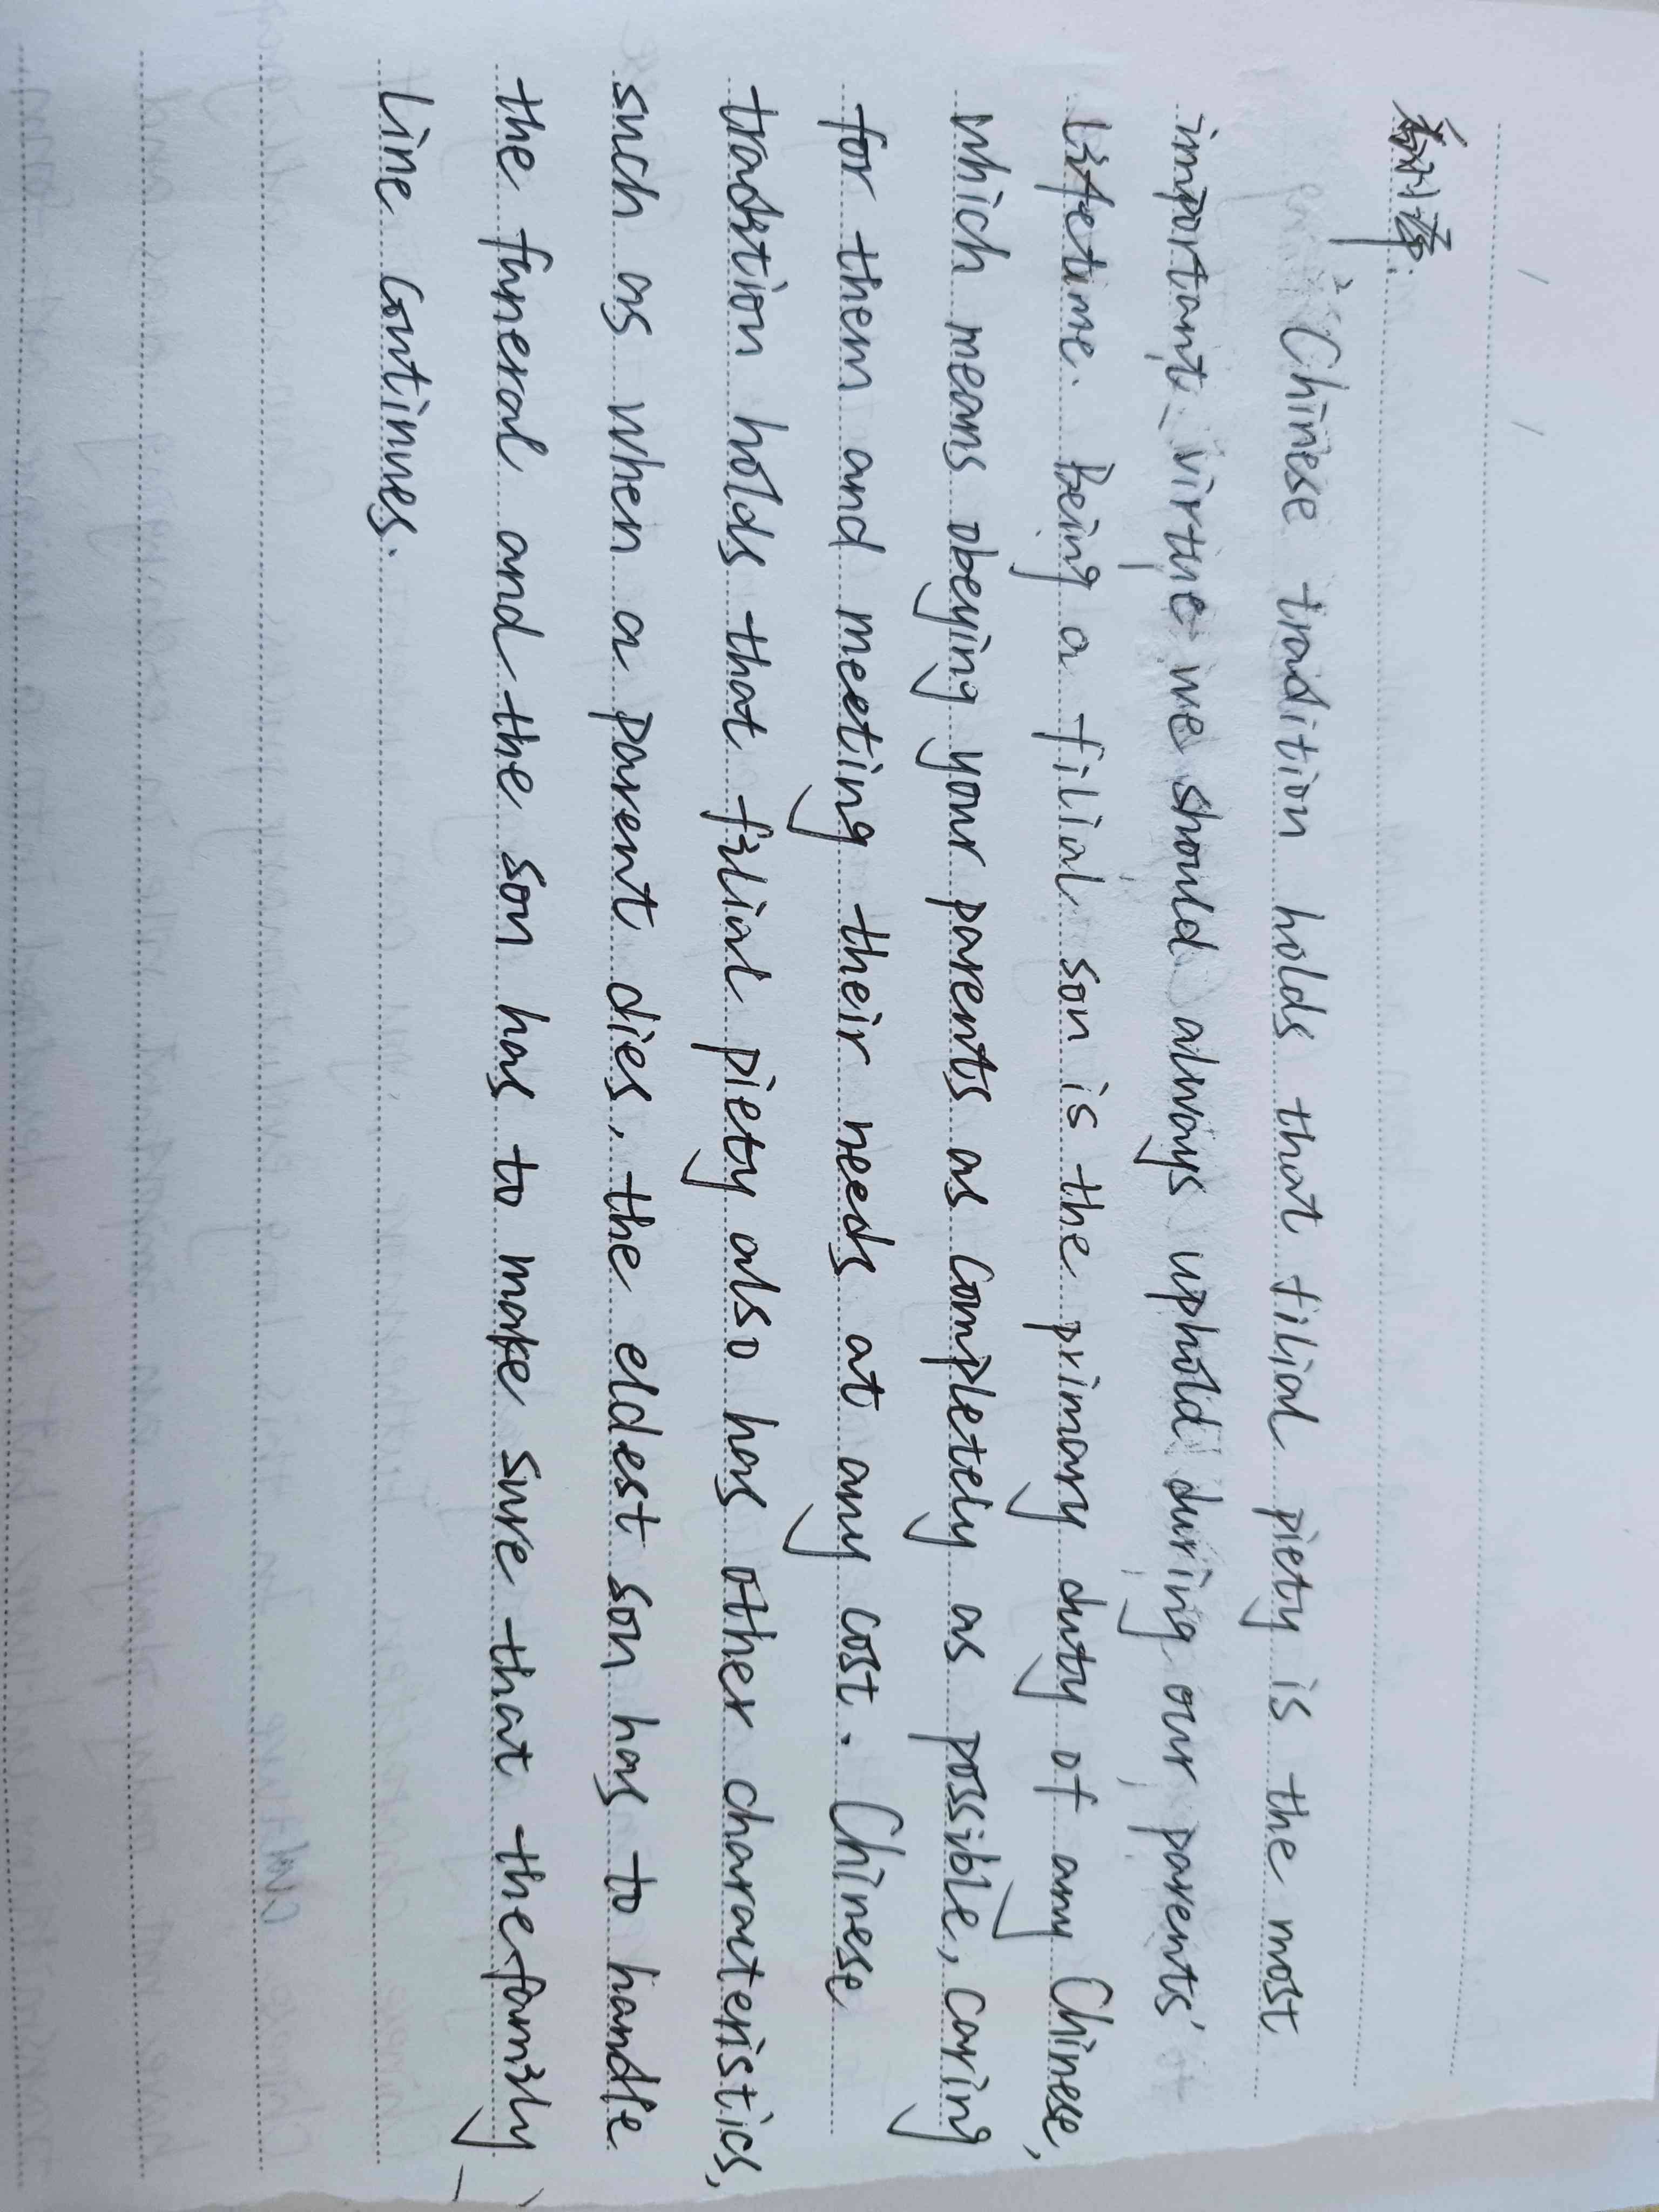 Chinese tradition holds that filial piety is the most
important virtue we should always uphold during our parents'
lifetime. Being a filial son is the primary duty of any Chinese,
which means obeying your parents as completely as possible, caring
for them and meeting their needs at any cost. Chinese
tradition holds that filial piety also has other characteristics,
such as when a parent dies, the eldest son has to handle
the funeral and the son has to make sure that the family
line continues.